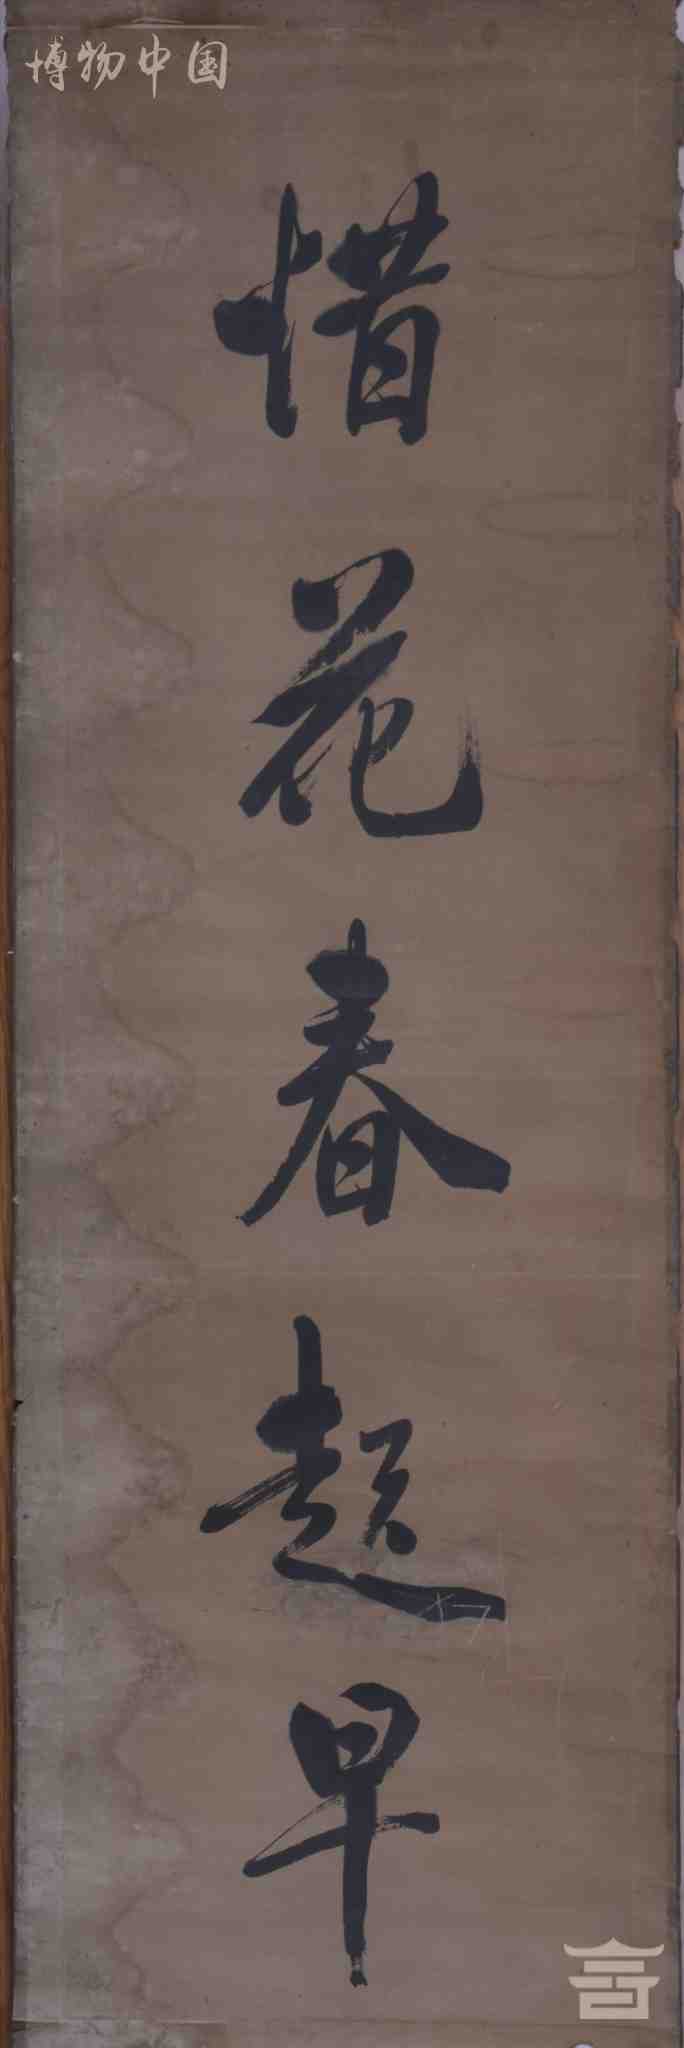 博物中国
惜花春起早